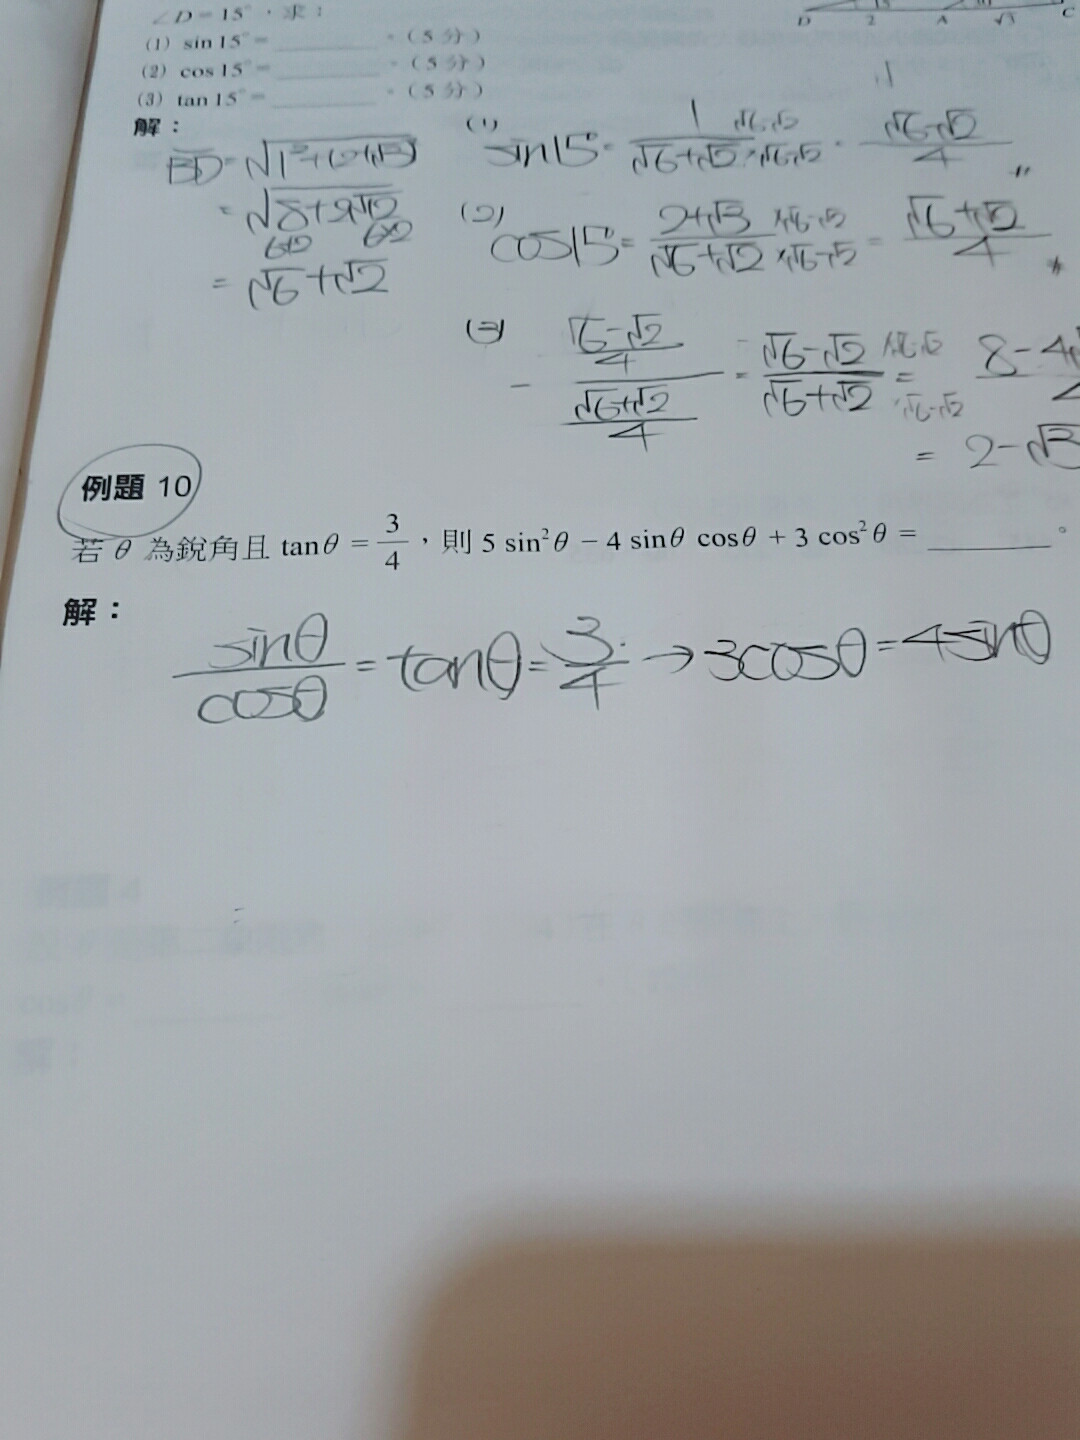 ∠D=15°，求：
D 2 A √3 C
(1) sin 15°=________。(5分)
(2) cos 15°=________。(5分)
(3) tan 15°=________。(5分)
解：
(1) sin15°= 1/(√6+√2) ×(√6-√2)/(√6-√2) = (√6-√2)/4
=√(8+2√12)
6+2 6×2
=√6+√2
(2) cos15°= (2+√3)/(√6+√2) ×(√6-√2)/(√6-√2) = (√6+√2)/4
(3) ((√6-√2)/4)/((√6+√2)/4) = (√6-√2)/(√6+√2) ×(√6-√2)/(√6-√2) =
= 2-√3
例題 10
若 θ 為銳角且 tanθ = 3/4，則 5 sin²θ − 4 sinθ cosθ + 3 cos²θ = ________。
解：
sinθ/cosθ = tanθ = 3/4 → 3cosθ = 4sinθ